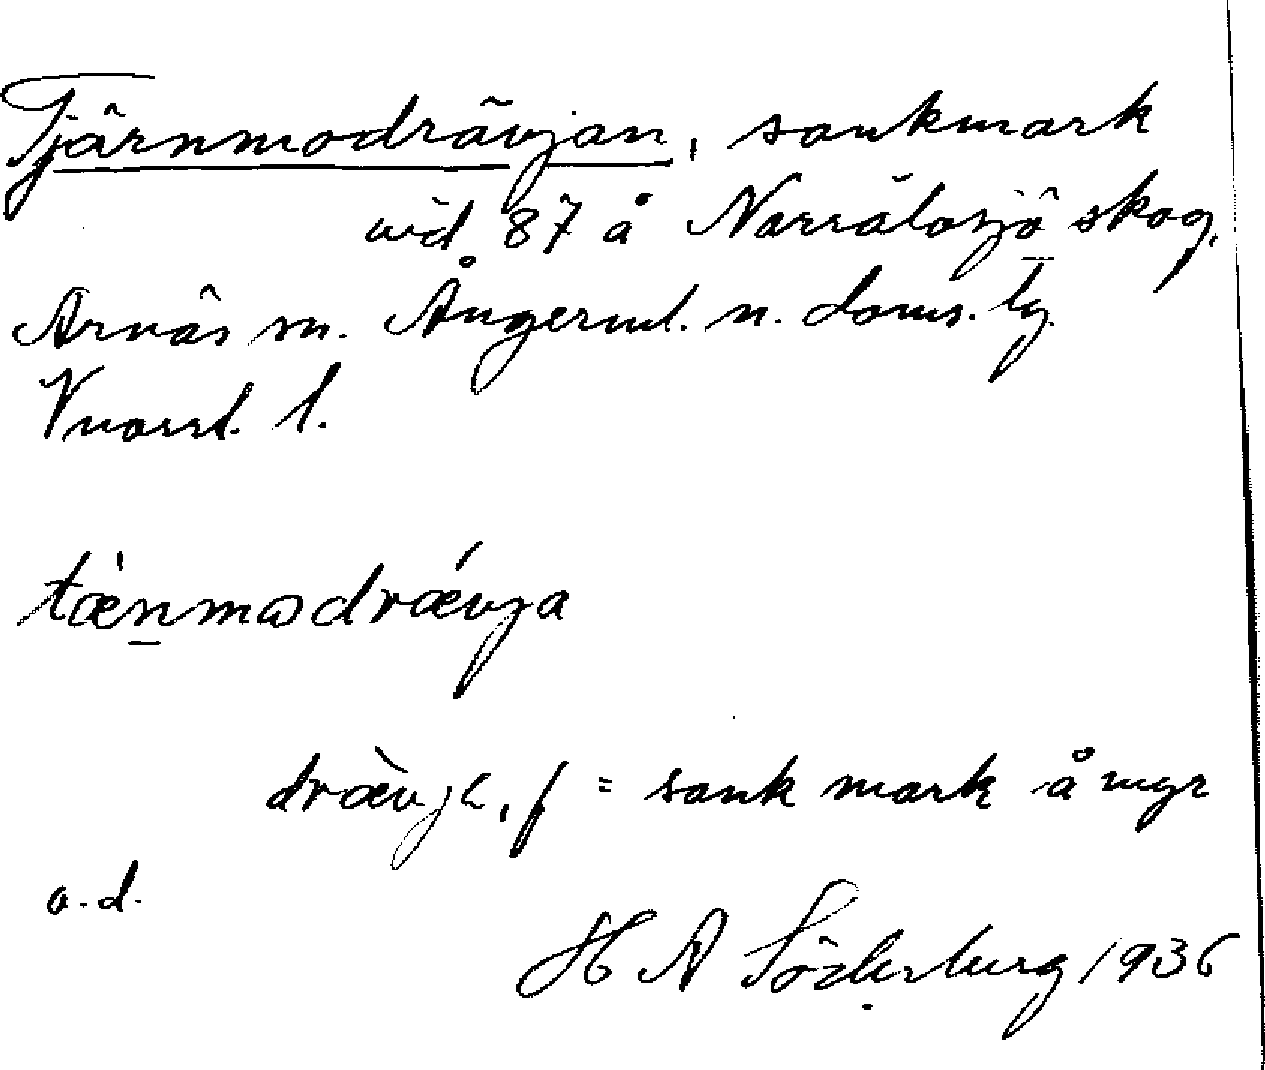 Tjärnmodrävjan, sankmark
vid 87 å Norrälasjö skog,
Arnäs sn. Ångerml. n. doms. lg.
Vuorrl. l.
tæ̀nmωdrǽvja
dræ̀vjɛ, f = sank mark å myr
o.d.
H A Söderberg 1936